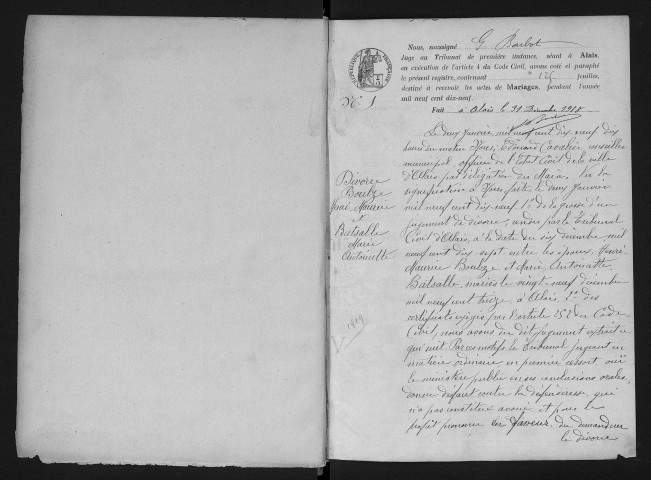 Nous, soussigné G. Barbot
Juge au Tribunal de première instance, séant à Alais,
en exécution de l'article 4 du Code Civil, avons coté et paraphé
le présent registre, contenant feuilles,
destiné à recevoir les actes de Mariages, pendant l'année
mil neuf cent dix-neuf.
Fait à Alais le 31 Décembre 1918
RÉPUBLIQUE FRANÇAISE
N° 1
Divorce
Boulze
Maurice
et
Batsalle
Marie
Antoinette
1919
Le deux Janvier, mil neuf cent dix neuf dix
heures du matin Nous, Edouard Cavalier, conseiller
municipal, officier de l'Etat Civil de la ville
d'Alais par délégation du Maire, sur la
réquisition à Nous faite, le deux Janvier
mil neuf cent dix neuf 1° de la grosse d'un
jugement de divorce, rendu par le Tribunal
Civil d'Alais, à la date du six décembre mil
neuf cent dix sept entre les époux, Henri
Maurice Boulze et Marie Antoinette
Batsalle mariés le vingt neuf décembre
mil neuf cent treize, à Alais, 2° des
certificats exigés par l'article 252 du Code
Civil, nous avons du dit jugement extrait ce
qui suit Par ces motifs le Tribunal jugeant en
matière ordinaire en premier ressort ouï
le ministère public en ses conclusions orales,
donne défaut contre la défenderesse, qui
n'a pas constitué avoué et pour le
profit prononce en faveur du demandeur
le divorce